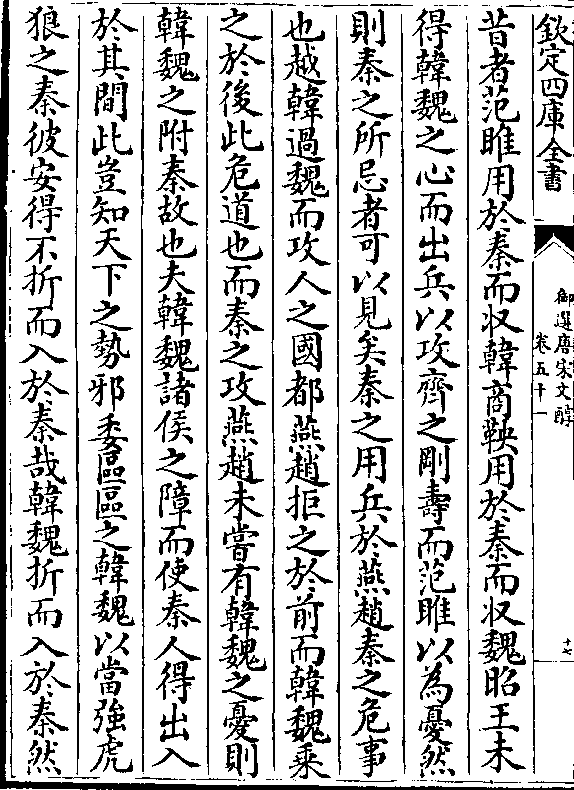 欽定四庫全書
御選唐宋文醇
卷五十一
十七
昔者范睢用於秦而収韓商鞅用於秦而収魏昭王未
得韓魏之心而出兵以攻齊之剛壽而范睢以為憂然
則秦之所忌者可以見矣秦之用兵於燕趙秦之危事
也越韓過魏而攻人之國都燕趙拒之於前而韓魏乗
之於後此危道也而秦之攻燕趙未嘗有韓魏之憂則
韓魏之附秦故也夫韓魏諸侯之障而使秦人得出入
於其間此豈知天下之勢邪委區區之韓魏以當強虎
狼之秦彼安得不折而入於秦哉韓魏折而入於秦然